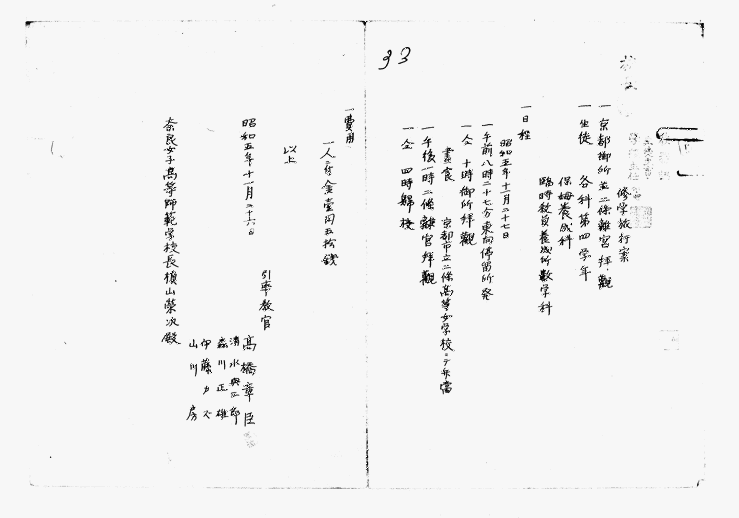 33
修学旅行案
一 京都御所並二條離宮拝観
一 生徒 各科第四学年
保姆養成科
臨時教員養成所数学科
一 日程
昭和五年十一月二十七日
一 午前八時二十七分東向停留所発
一 仝 十時御所拝観
昼食 京都市立二條高等女学校ニテ弁当
一 午後一時二條離宮拝観
一 仝 四時帰校
一 費用
一人ニ付金壹円五拾銭
以上
昭和五年十一月二十六日
引率教官
高橋章臣
清水與三郎
森川正雄
伊藤
山川 房
奈良女子高等師範学校長槇山榮次殿